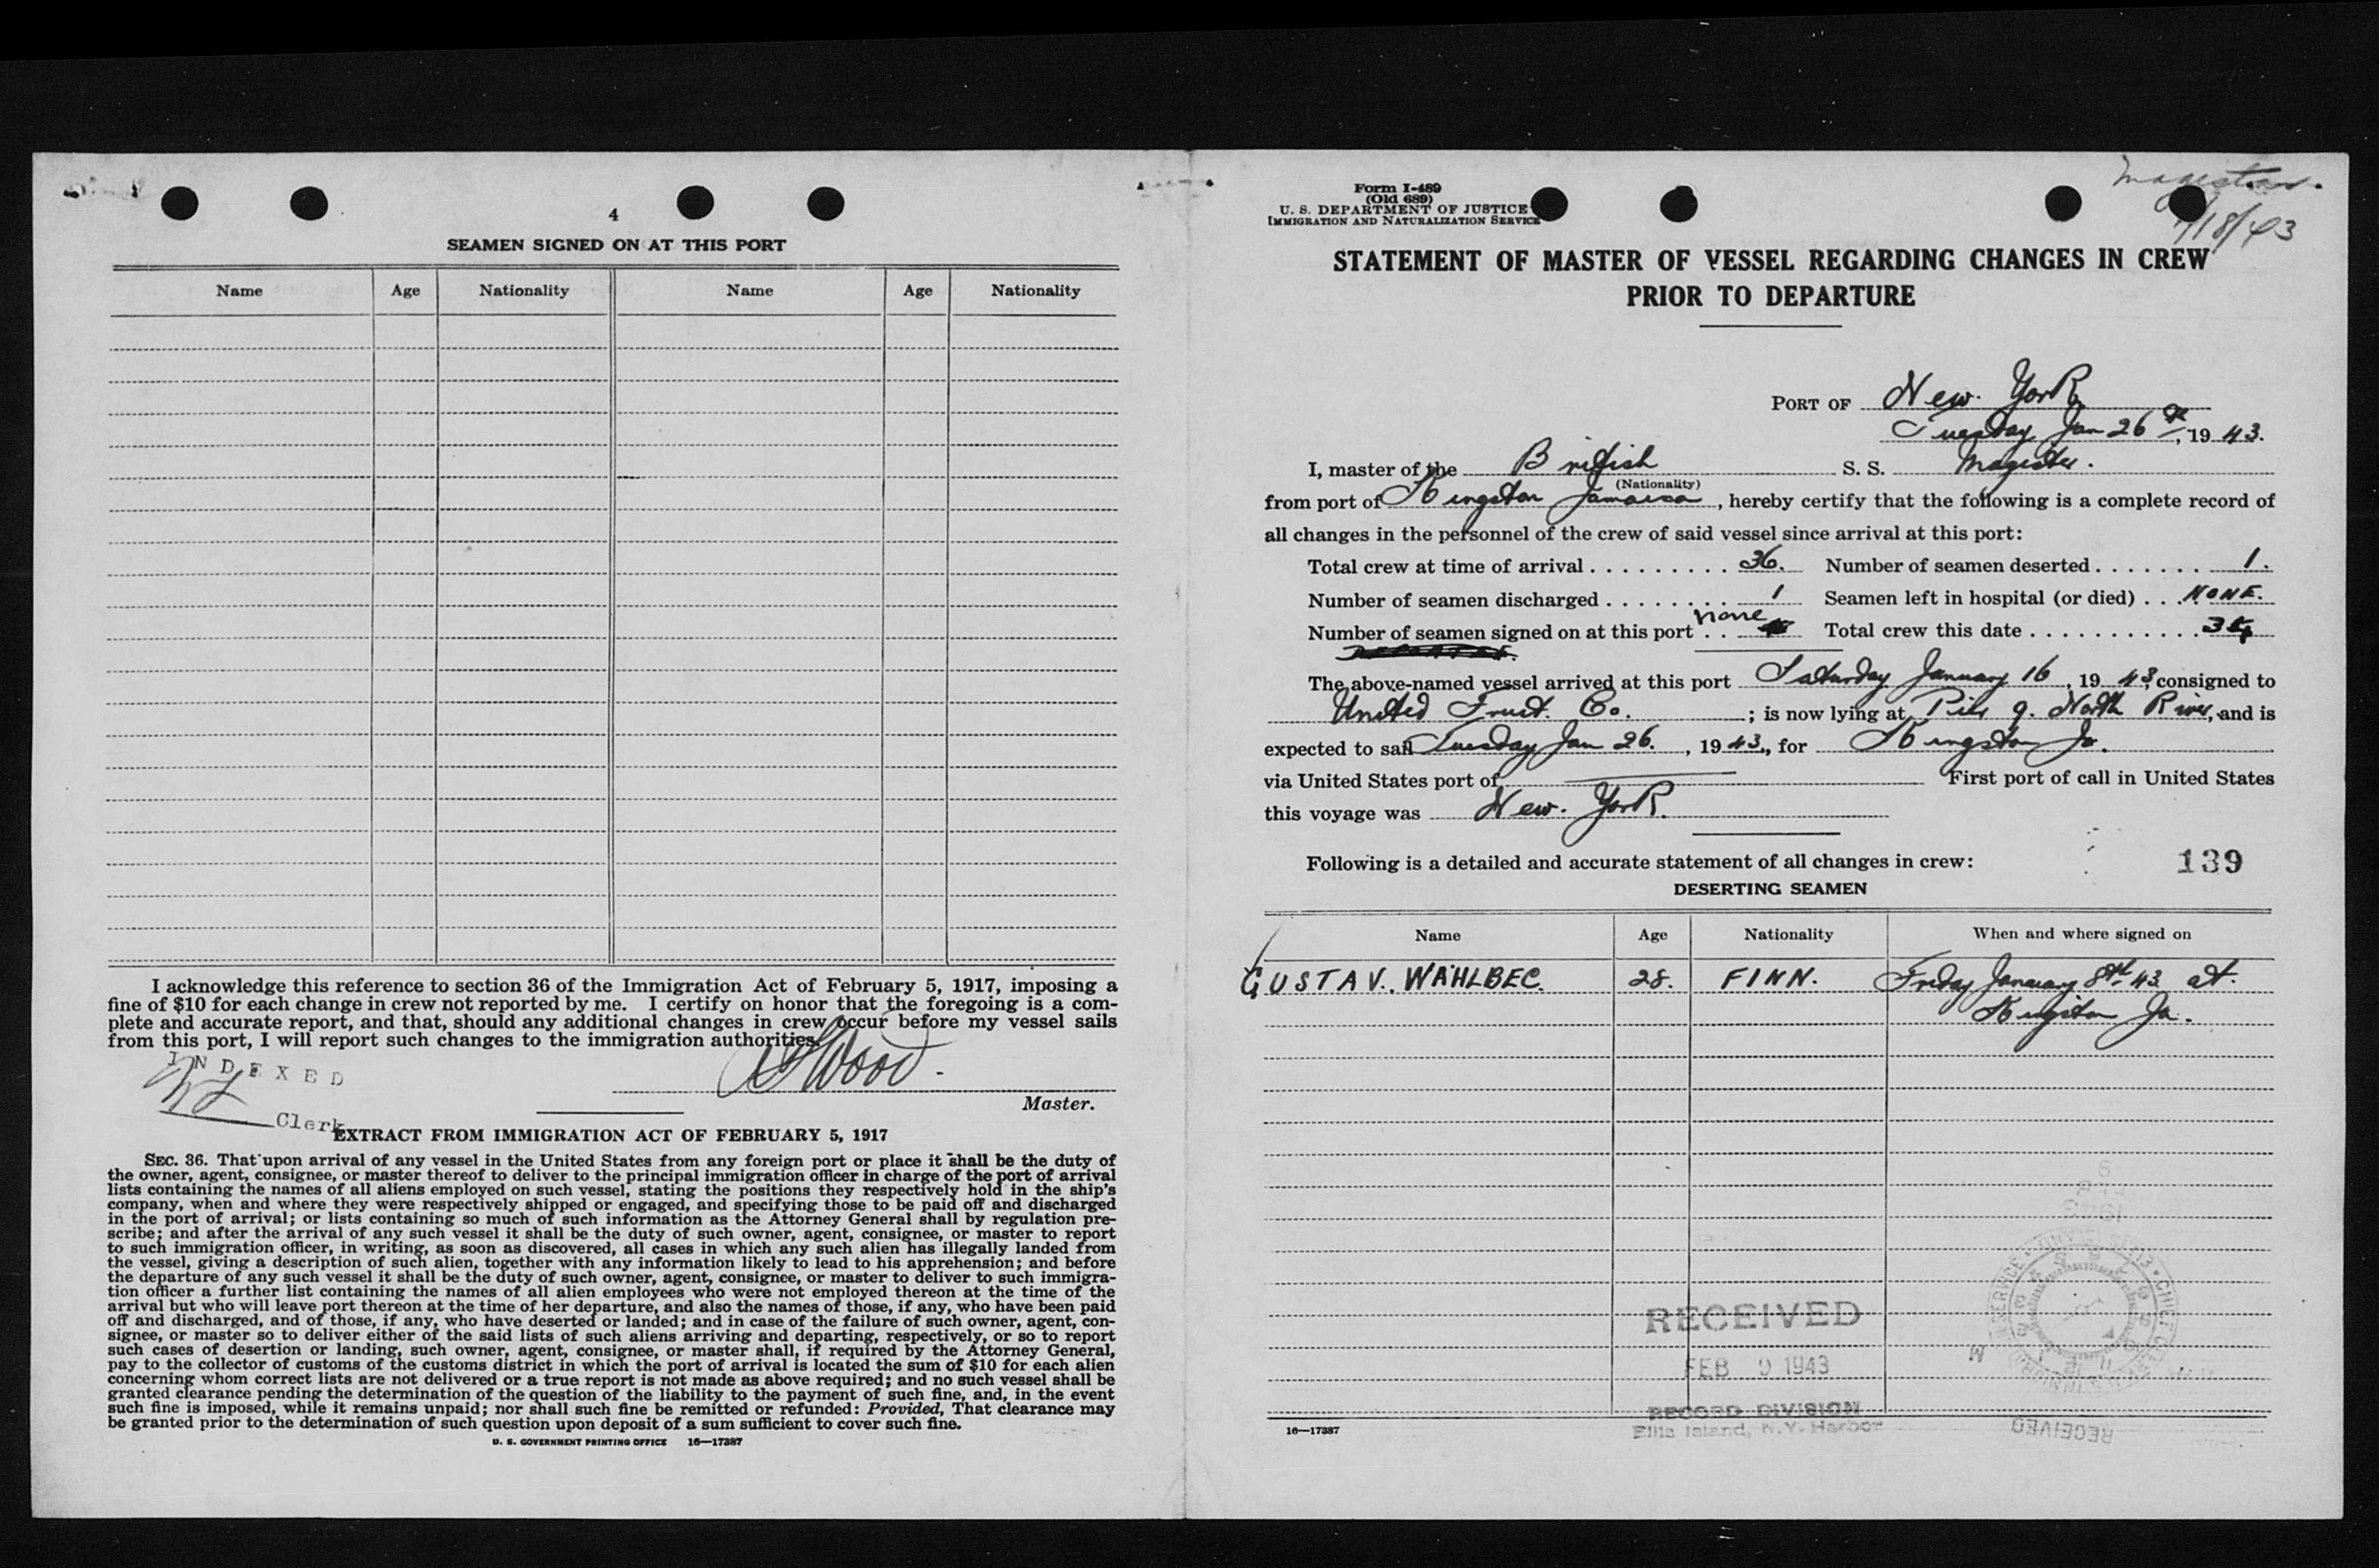 4
SEAMEN SIGNED ON AT THIS PORT
Name Age Nationality Name Age Nationality
I acknowledge this reference to section 36 of the Immigration Act of February 5, 1917, imposing a
fine of $10 for each change in crew not reported by me. I certify on honor that the foregoing is a com-
plete and accurate report, and that, should any additional changes in crew occur before my vessel sails
from this port, I will report such changes to the immigration authorities.
Wood
INDEXED
Master.
Clerk
EXTRACT FROM IMMIGRATION ACT OF FEBRUARY 5, 1917
SEC. 36. That upon arrival of any vessel in the United States from any foreign port or place it shall be the duty of
the owner, agent, consignee, or master thereof to deliver to the principal immigration officer in charge of the port of arrival
lists containing the names of all aliens employed on such vessel, stating the positions they respectively hold in the ship's
company, when and where they were respectively shipped or engaged, and specifying those to be paid off and discharged
in the port of arrival; or lists containing so much of such information as the Attorney General shall by regulation pre-
scribe; and after the arrival of any such vessel it shall be the duty of such owner, agent, consignee, or master to report
to such immigration officer, in writing, as soon as discovered, all cases in which any such alien has illegally landed from
the vessel, giving a description of such alien, together with any information likely to lead to his apprehension; and before
the departure of any such vessel it shall be the duty of such owner, agent, consignee, or master to deliver to such immigra-
tion officer a further list containing the names of all alien employees who were not employed thereon at the time of the
arrival but who will leave port thereon at the time of her departure, and also the names of those, if any, who have been paid
off and discharged, and of those, if any, who have deserted or landed; and in case of the failure of such owner, agent, con-
signee, or master so to deliver either of the said lists of such aliens arriving and departing, respectively, or so to report
such cases of desertion or landing, such owner, agent, consignee, or master shall, if required by the Attorney General,
pay to the collector of customs of the customs district in which the port of arrival is located the sum of $10 for each alien
concerning whom correct lists are not delivered or a true report is not made as above required; and no such vessel shall be
granted clearance pending the determination of the question of the liability to the payment of such fine, and, in the event
such fine is imposed, while it remains unpaid; nor shall such fine be remitted or refunded: Provided, That clearance may
be granted prior to the determination of such question upon deposit of a sum sufficient to cover such fine.
U. S. GOVERNMENT PRINTING OFFICE 16—17387
Form I-489
(Old 689)
U. S. DEPARTMENT OF JUSTICE
IMMIGRATION AND NATURALIZATION SERVICE
Magister.
1/18/43
STATEMENT OF MASTER OF VESSEL REGARDING CHANGES IN CREW
PRIOR TO DEPARTURE
PORT OF New York
Tuesday Jan 26th, 1943.
I, master of the British S. S. Magister.
(Nationality)
from port of Kingston Jamaica, hereby certify that the following is a complete record of
all changes in the personnel of the crew of said vessel since arrival at this port:
Total crew at time of arrival 36. Number of seamen deserted 1.
Number of seamen discharged 1 Seamen left in hospital (or died) NONE.
Number of seamen signed on at this port none Total crew this date 34
The above-named vessel arrived at this port Saturday January 16, 1943, consigned to
United Fruit Co.; is now lying at Pier 9. North River, and is
expected to sail Tuesday Jan 26., 1943., for Kingston Ja.
via United States port of First port of call in United States
this voyage was New York.
Following is a detailed and accurate statement of all changes in crew:
139
DESERTING SEAMEN
Name Age Nationality When and where signed on
GUSTAV. WAHLBEC. 28. FINN. Friday January 8th 43 at.
Kingston Ja.
RECEIVED
FEB 9 1943
RECORD DIVISION
Ellis Island, N.Y. Harbor
16—17387
RECEIVED